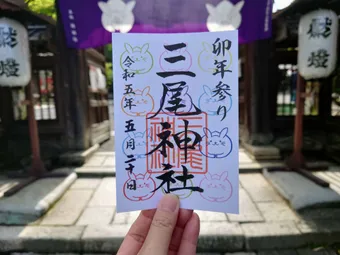 卯年参り
三尾神社
令和五年五月二十日
獻燈
獻燈